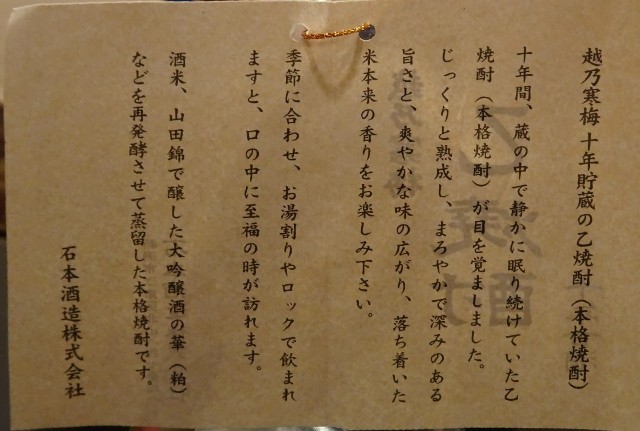 越乃寒梅 十年貯蔵の乙焼酎（本格焼酎）
十年間、蔵の中で静かに眠り続けていた乙
焼酎（本格焼酎）が目を覚ましました。
じっくりと熟成し、まろやかで深みのある
旨さと、爽やかな味の広がり、落ち着いた
米本来の香りをお楽しみ下さい。
季節に合わせ、お湯割りやロックで飲まれ
ますと、口の中に至福の時が訪れます。
酒米、山田錦で醸した大吟醸酒の華（粕）
などを再発酵させて蒸留した本格焼酎です。
石本酒造株式会社